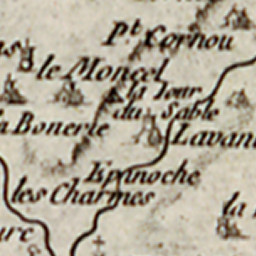 P.t Cornou
le Moncel
la Tour
du Sable
Bonerie
Lavan
Epinoche
les Charmes
la